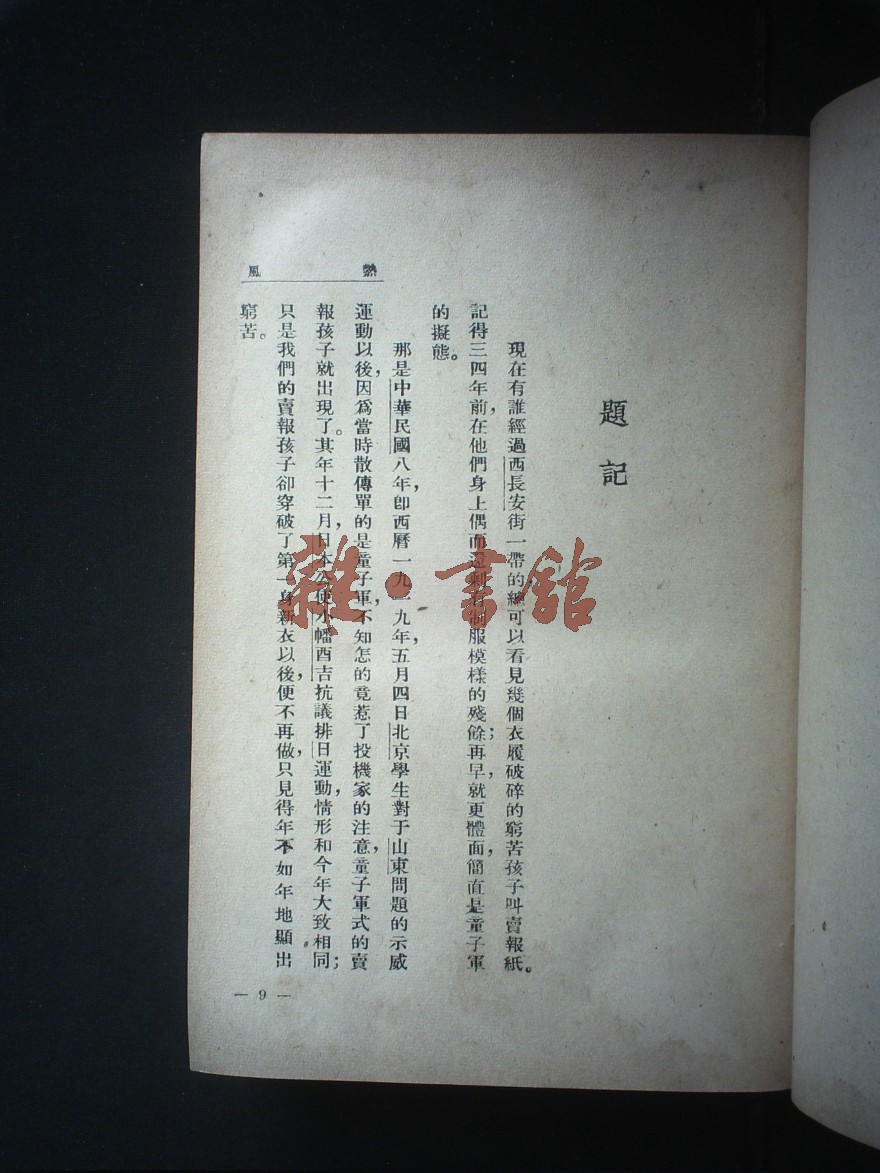 熱風
題記
現在有誰經過西長安街一帶的,總可以看見幾個衣履破碎的窮苦孩子叫賣報紙。
記得三四年前,在他們身上偶而還剩有制服模樣的殘餘;再早,就更體面,簡直是童子軍
的擬態。
那是中華民國八年,卽西曆一九一九年,五月四日北京學生對于山東問題的示威
運動以後,因爲當時散傳單的是童子軍,不知怎的竟惹了投機家的注意,童子軍式的賣
報孩子就出現了。其年十二月,日本公使小幡酉吉抗議排日運動,情形和今年大致相同;
只是我們的賣報孩子卻穿破了第一身新衣以後,便不再做,只見得年不如年地顯出
窮苦。
— 9 —
雜·書館